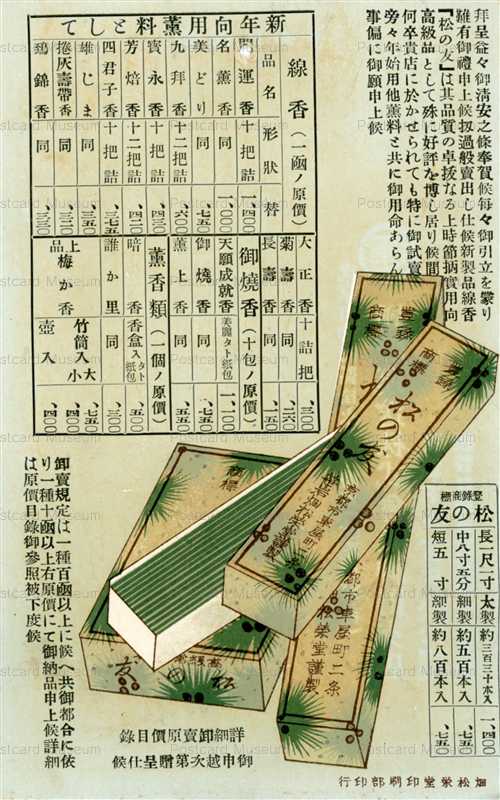 拜呈益々御清安之條奉賀候每々御引立を蒙り
難有御禮申上候扨過般賣出し仕候新製品線香
『松の友』は其品質の卓拔なる上時節柄實用向
高級品として殊に好評を博し居り候間
何卒貴店に於かせられても特に御試賣
旁々年始用他薰料と共に御用命あらん
事偏に御願申上候
新年向用薰料として
線香(一凾ノ原價)
品名 形狀 替
開運香 十把詰 一、四〇〇
名薰香 同 一、〇〇〇
美どり 同 、七五〇
九拜香 十二把詰 、六〇〇
寶永香 十把詰 、四三〇
芳焙香 十二把詰 、四二〇
四君子香 十把詰 、三七五
雄じま 同 、三五〇
捲灰壽帶香 同
鵄錦香 同 、三二〇
大正香 十把詰 、三〇〇
菊壽香 同 、二六〇
長壽香 同 、二五〇
御燒香(十包ノ原價)
天願成就香 美麗タト紙包 一、一〇〇
御燒香 同 、七五〇
薰上香 同 、五五〇
薰香類(一個ノ原價)
暗香 香盒入タト紙包 、五五〇
誰か里 同 、三〇〇
上品梅か香 竹筒入大 、七五〇
小 、四〇〇
壺入 、四〇〇
登錄商標
松の友
長一尺一寸 太製 約三百三十本入 一、四〇〇
中八寸五分 細製 約五百本入 、七五〇
短五寸 細製 約八百本入 、七五〇
登錄
商標
松の友
京都市車屋町二条
畑松栄堂謹製
登錄
商標
都市車屋町二条
松栄堂謹製
商標
松
友
卸賣規定は一種百凾以上に候へ共御都合に依
り一種十凾以上右原價にて御納品申上候詳細
は原價目錄御參照被下度候
詳細卸賣原價目錄
御申越次第贈呈仕候
畑松栄堂印刷部印行
Postcard Museum